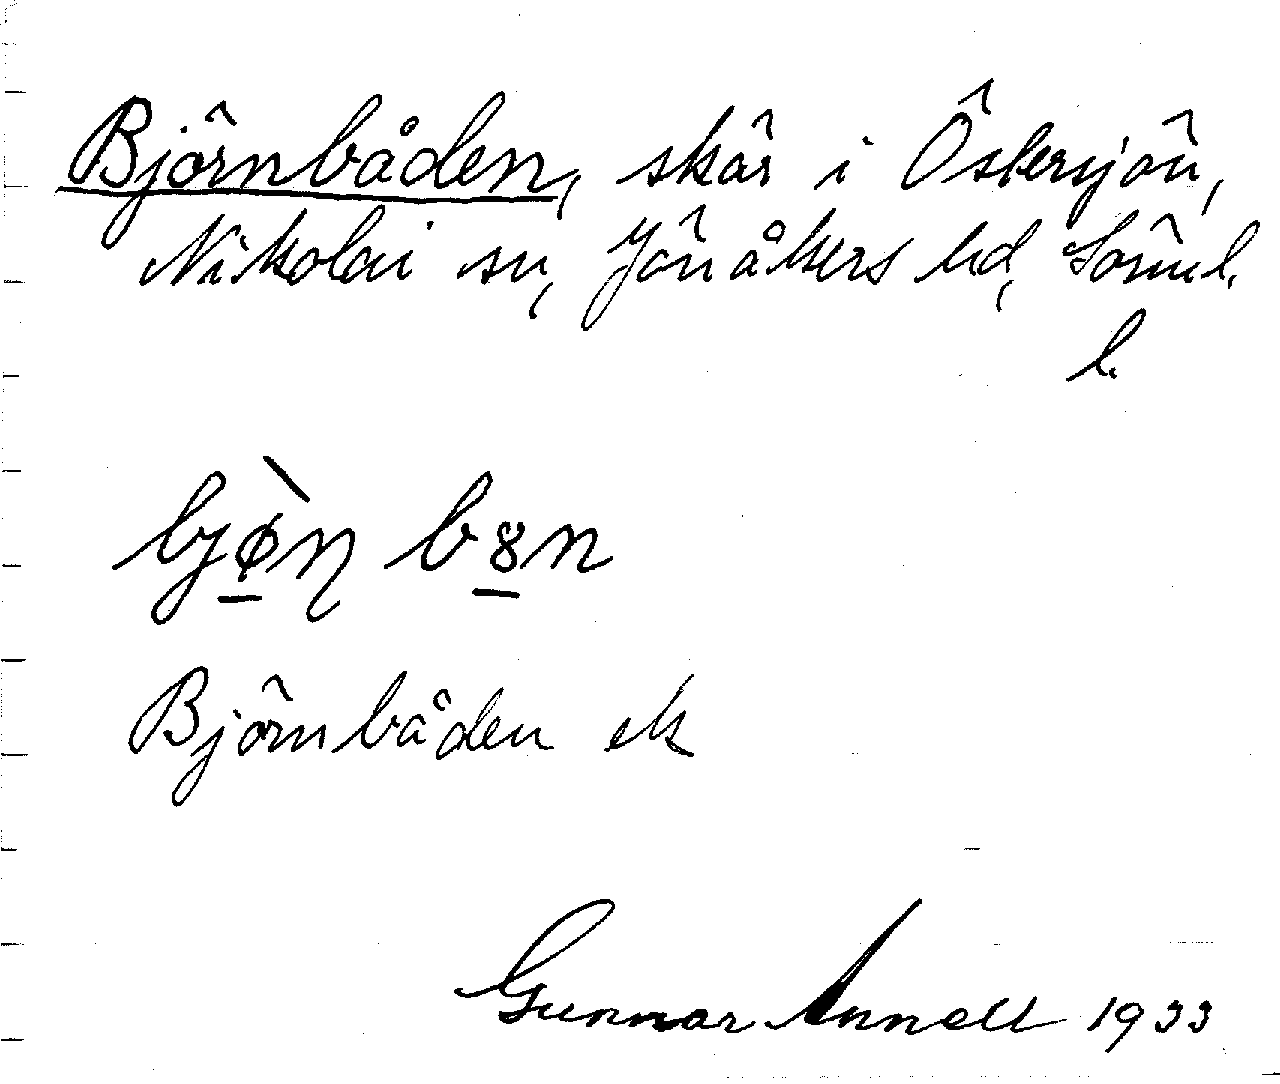 Björnbåden, skär i Östersjön,
Nikolai sn, Jönåkers hd, Sörml.
l.
bjɵ̀n bȣn
Björnbåden ek
Gunnar Annell 1933